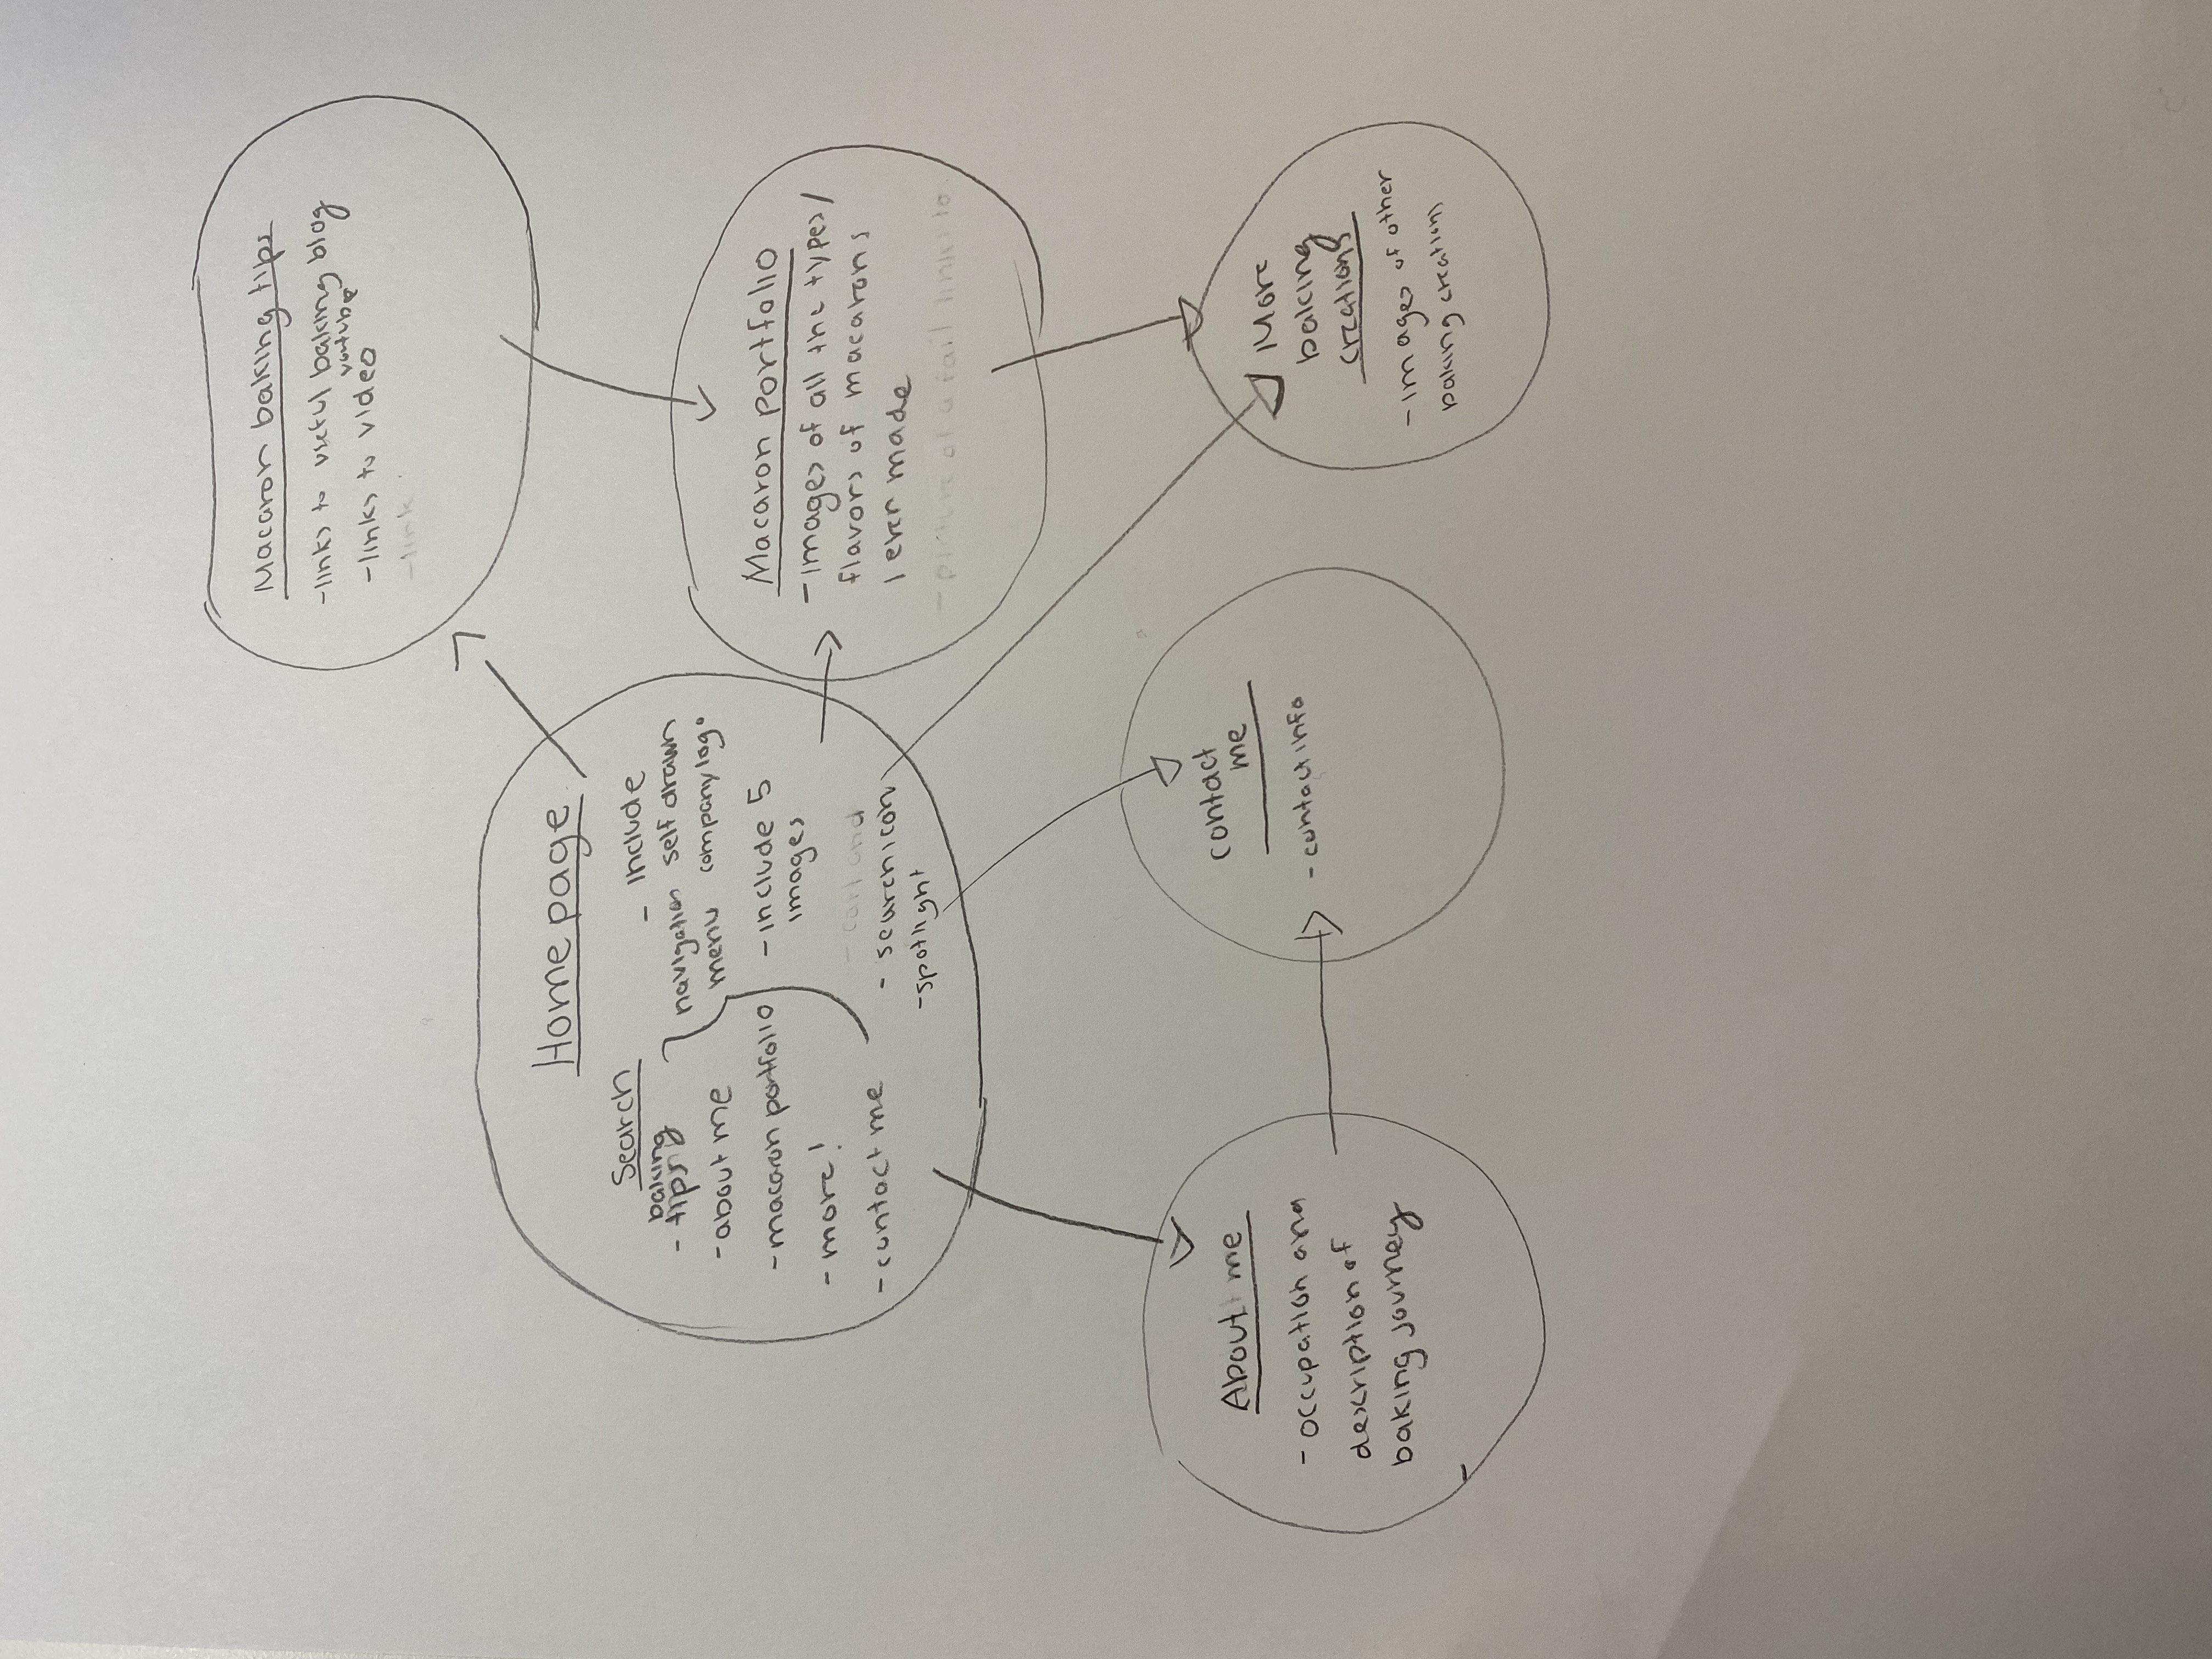 Macaron baking tips
- links to useful baking blog
youtube
- links to video
- link
Home page
Search
baking
- tips
- about me
- macaron portfolio
- more!
- contact me
navigation
menu
- include
self drawn
company logo
- include 5
images
- cart and
- search icon
- spotlight
Macaron portfolio
- images of all the types/
flavors of macarons
I ever made
- picture of a fail links to
About me
- occupation and
description of
baking journey
-
contact
me
- contact info
More
baking
creations
- images of other
baking creations